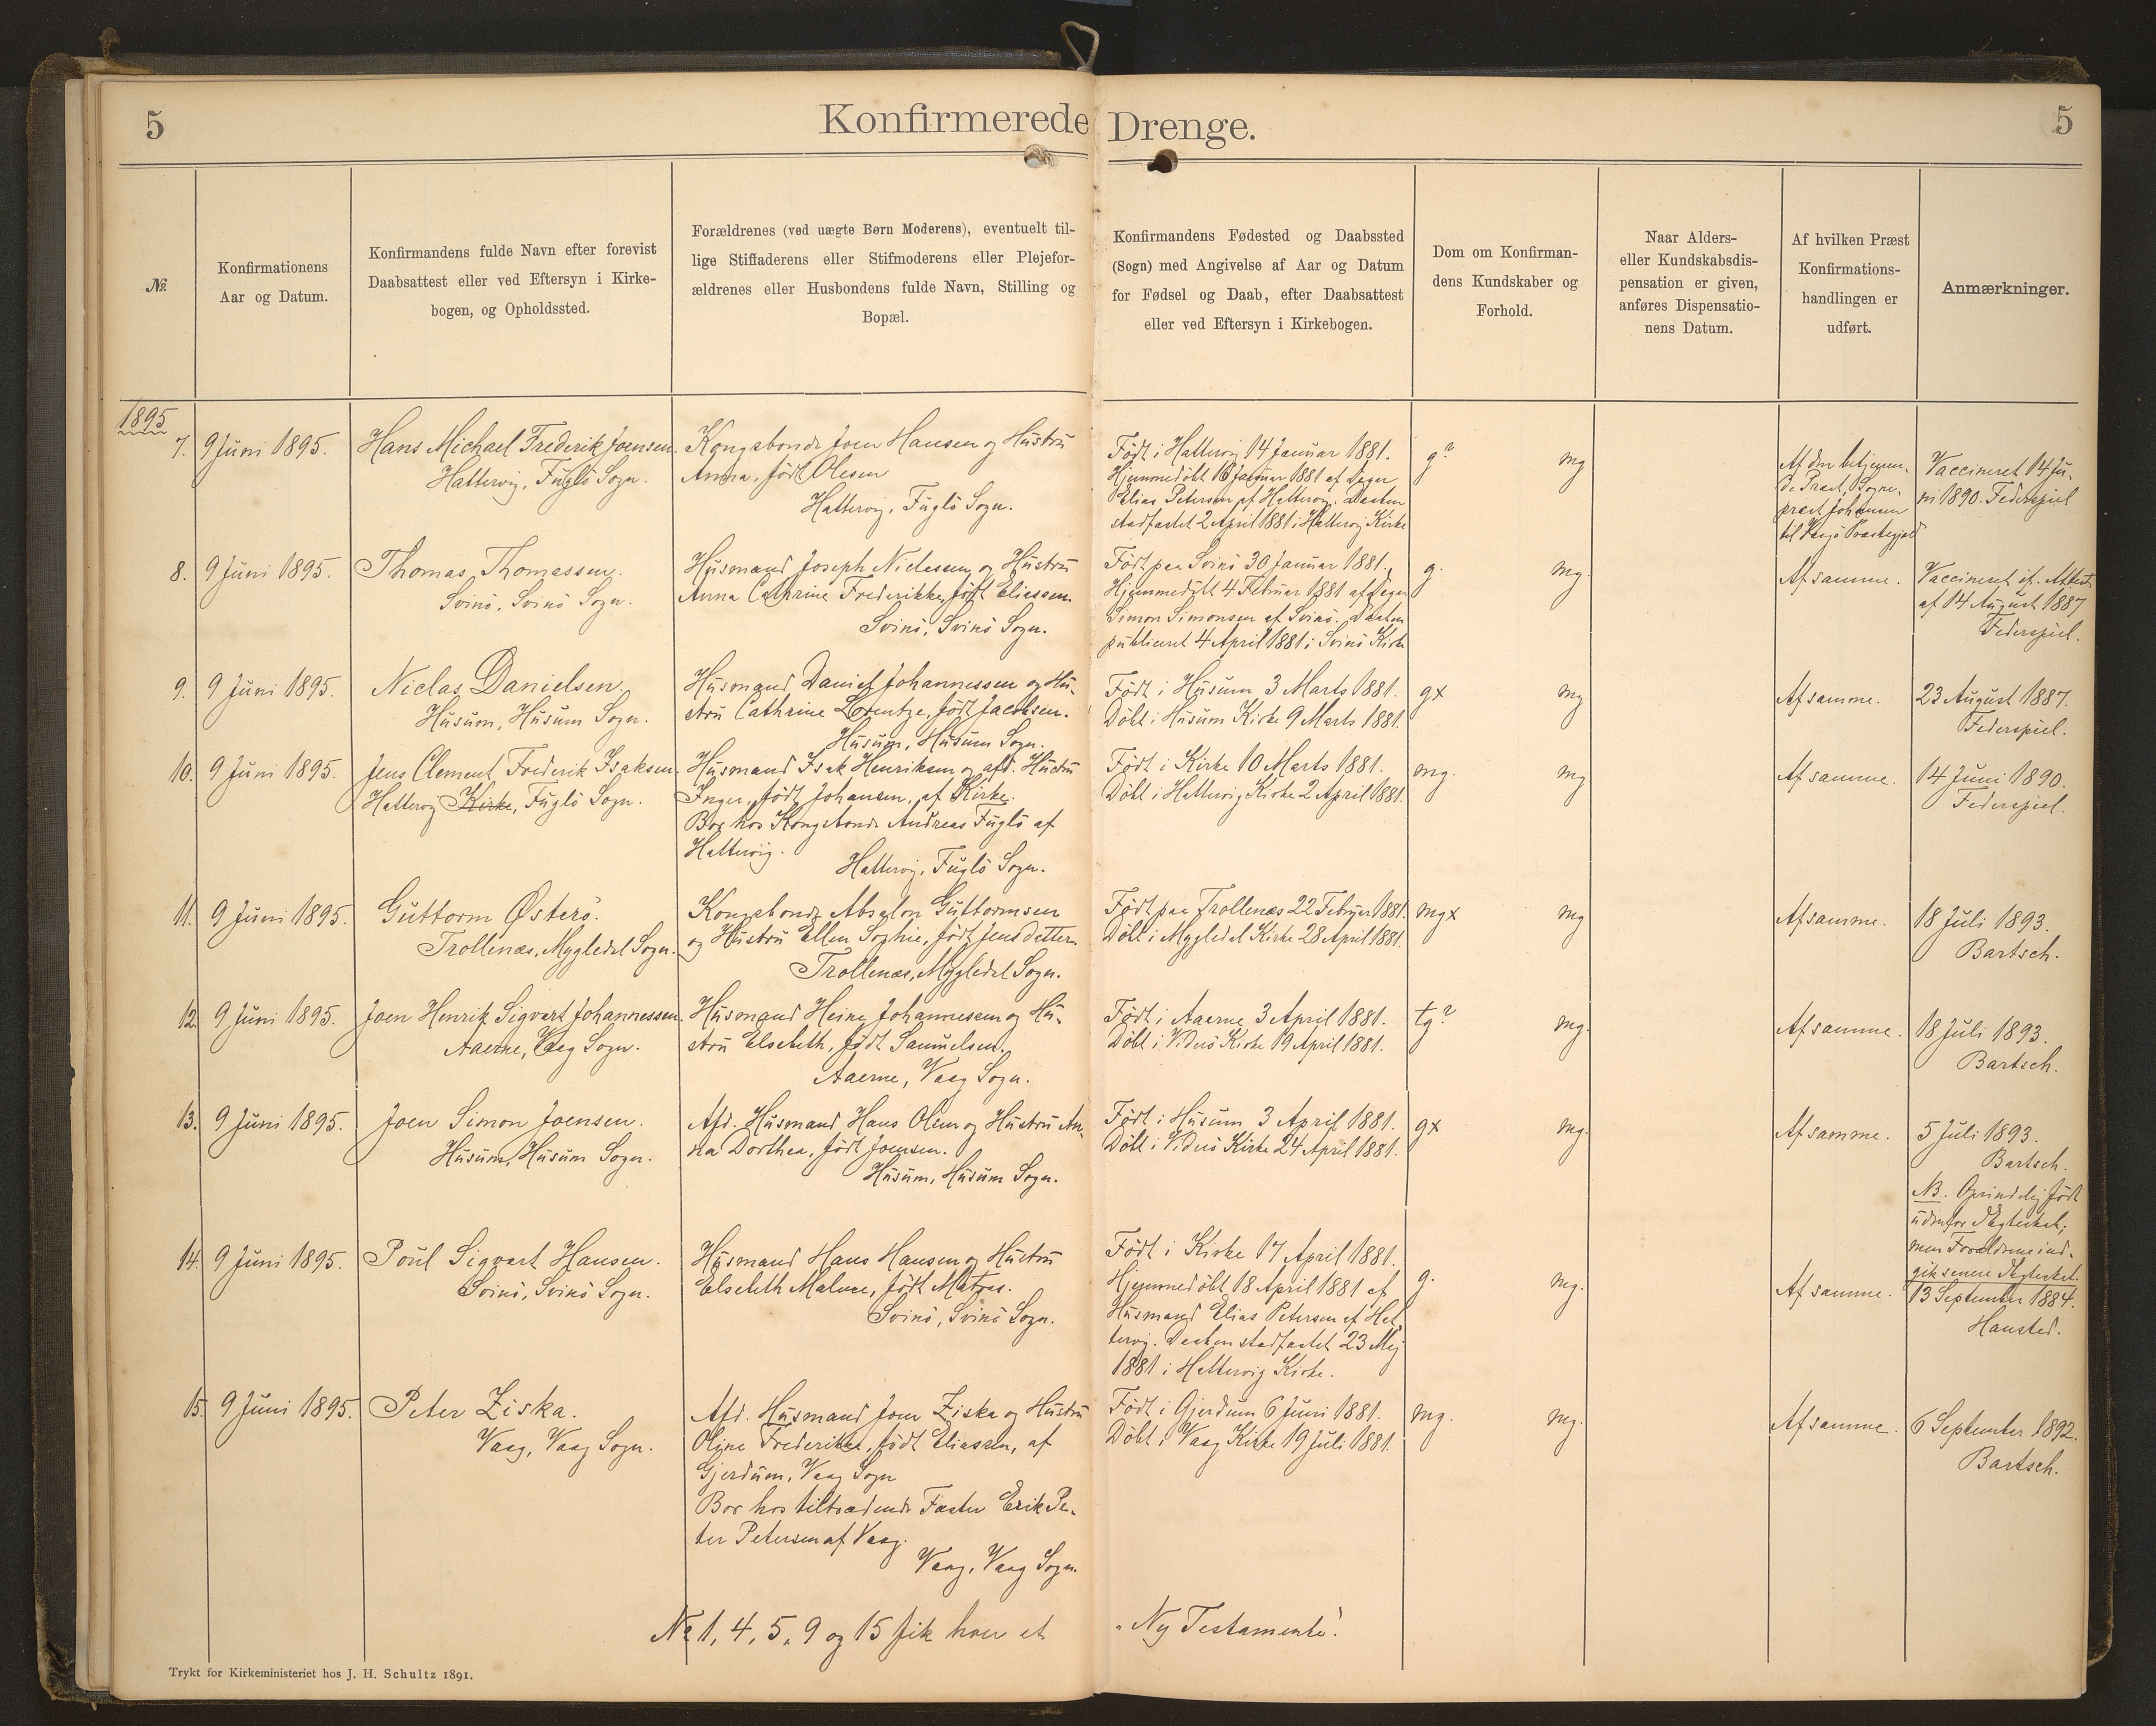 5
Konfirmerede Drenge.
5
№.
Konfirmationens
Aar og Datum.
Konfirmandens fulde Navn efter forevist
Daabsattest eller ved Eftersyn i Kirke-
bogen, og Opholdssted.
Forældrenes (ved uægte Børn Moderens), eventuelt til-
lige Stiffaderens eller Stifmoderens eller Plejefor-
ældrenes eller Husbondens fulde Navn, Stilling og
Bopæl.
Konfirmandens Fødested og Daabssted
(Sogn) med Angivelse af Aar og Datum
for Fødsel og Daab, efter Daabsattest
eller ved Eftersyn i Kirkebogen.
Dom om Konfirman-
dens Kundskaber og
Forhold.
Naar Alders-
eller Kundskabsdis-
pensation er given,
anføres Dispensatio-
nens Datum.
Af hvilken Præst
Konfirmations-
handlingen er
udført.
Anmærkninger.
1895
7.
9 Juni 1895.
Hans Michael Frederik Joensen.
Hattervig, Fuglö Sogn.
Kongsbonde Joen Hansen og Hustru
Anna, født Olesen
Hattervig, Fuglö Sogn.
Født i Hattervig 14 Januar 1881.
Hjemmedöbt 16 Januar 1881 af Degn
Elias Petersen af Hattervig. Daaben
stadfæstet 2 April 1881 i Hattervig Kirke
g?
mg
Af den betjenen-
de Præst, Sogne-
præst Johansen
til Vaagö Præstegjeld
Vaccineret 14 Ju-
ni 1890. Federspiel
8.
9 Juni 1895.
Thomas Thomassen.
Svinö, Svinö Sogn.
Husmand Joseph Niclesen og Hustru
Anna Cathrine Frederikke, født Eliassen.
Svinö, Svinö Sogn.
Født paa Svinö 30 Januar 1881.
Hjemmedöbt 4 Februar 1881 af Degn
Simon Simonsen af Svinö. Daaben
publiceret 4 April 1881 i Svinö Kirke
g.
mg.
Af samme.
Vaccineret if. Attest
af 14 August 1887
Federspiel.
9.
9 Juni 1895.
Niclas Danielsen.
Husum, Husum Sogn.
Husmand Daniel Johannessen og Hu-
stru Cathrine Lorentze, født Jacobsen.
Husum, Husum Sogn.
Født i Husum 3 Marts 1881.
Döbt i Husum Kirke 9 Marts 1881.
gx
mg
Af samme.
23 August 1887.
Federspiel.
10.
9 Juni 1895.
Jens Clement Frederik Isaksen.
Hattervig Kirke, Fuglö Sogn.
Husmand Isak Henriksen og afd. Hustru
Inger, født Johansen, af Kirke.
Bor hos Kongsbonde Andreas Fuglö af
Hattervig.
Hattervig, Fuglö Sogn.
Født i Kirke 10 Marts 1881.
Döbt i Hattervig Kirke 2 April 1881.
mg.
mg
Af samme.
14 Juni 1890.
Federspiel.
11.
9 Juni 1895.
Guttorm Østerö.
Trollenæs, Mygledal Sogn.
Kongsbonde Absalon Guttormsen
og Hustru Ellen Sophie, født Jensdatter.
Trollenæs, Mygledal Sogn.
Født paa Trollenæs 22 Februar 1881.
Döbt i Mygledal Kirke 28 April 1881.
mgx
mg
Af samme.
18 Juli 1893.
Bartsch.
12.
9 Juni 1895.
Joen Henrik Sigvart Johannessen.
Aaerne, Vaag Sogn.
Husmand Heine Johannesen og Hu-
stru Elsebeth, født Samuelsen.
Aaerne, Vaag Sogn.
Født i Aaerne 3 April 1881.
Döbt i Viderö Kirke 19 April 1881.
tg?
mg.
Af samme.
18 Juli 1893.
Bartsch.
13.
9 Juni 1895.
Joen Simon Joensen.
Husum, Husum Sogn.
Afd. Husmand Hans Olsen og Hustru An-
na Dorthea, født Joensen.
Husum, Husum Sogn.
Født i Husum 3 April 1881.
Döbt i Viderö Kirke 24 April 1881.
gx
mg.
Af samme.
5 Juli 1893.
Bartsch.
14.
9 Juni 1895.
Poul Sigvart Hansen.
Svinö, Svinö Sogn.
Husmand Hans Hansen og Hustru
Elsebeth Malene, født Matras.
Svinö, Svinö Sogn.
Født i Kirke 17 April 1881.
Hjemmedöbt 18 April 1881 af
Husmand Elias Petersen af Hat-
tervig. Daaben stadfæstet 23 Maj
1881 i Hattervig Kirke.
g.
mg.
Af samme.
NB. Oprindelig født
udenfor Ægteskab,
men Forældrene ind-
gik senere Ægteskab.
13 September 1884.
Hansted.
15.
9 Juni 1895.
Peter Ziska.
Vaag, Vaag Sogn.
Afd. Husmand Joen Ziska og Hustru
Oline Frederikke, født Eliassen, af
Gjerdum, Vaag Sogn
Bor hos tiltrædende Fæster Erik Pe-
ter Petersen af Vaag.
Vaag, Vaag Sogn.
Født i Gjerdum 6 Juni 1881.
Döbt i Vaag Kirke 19 Juli 1881.
mg.
mg.
Af samme.
6 September 1892.
Bartsch.
No 1, 4, 5, 9 og 15 fik hver et „Ny Testamente".
Trykt for Kirkeministeriet hos J. H. Schultz 1891.